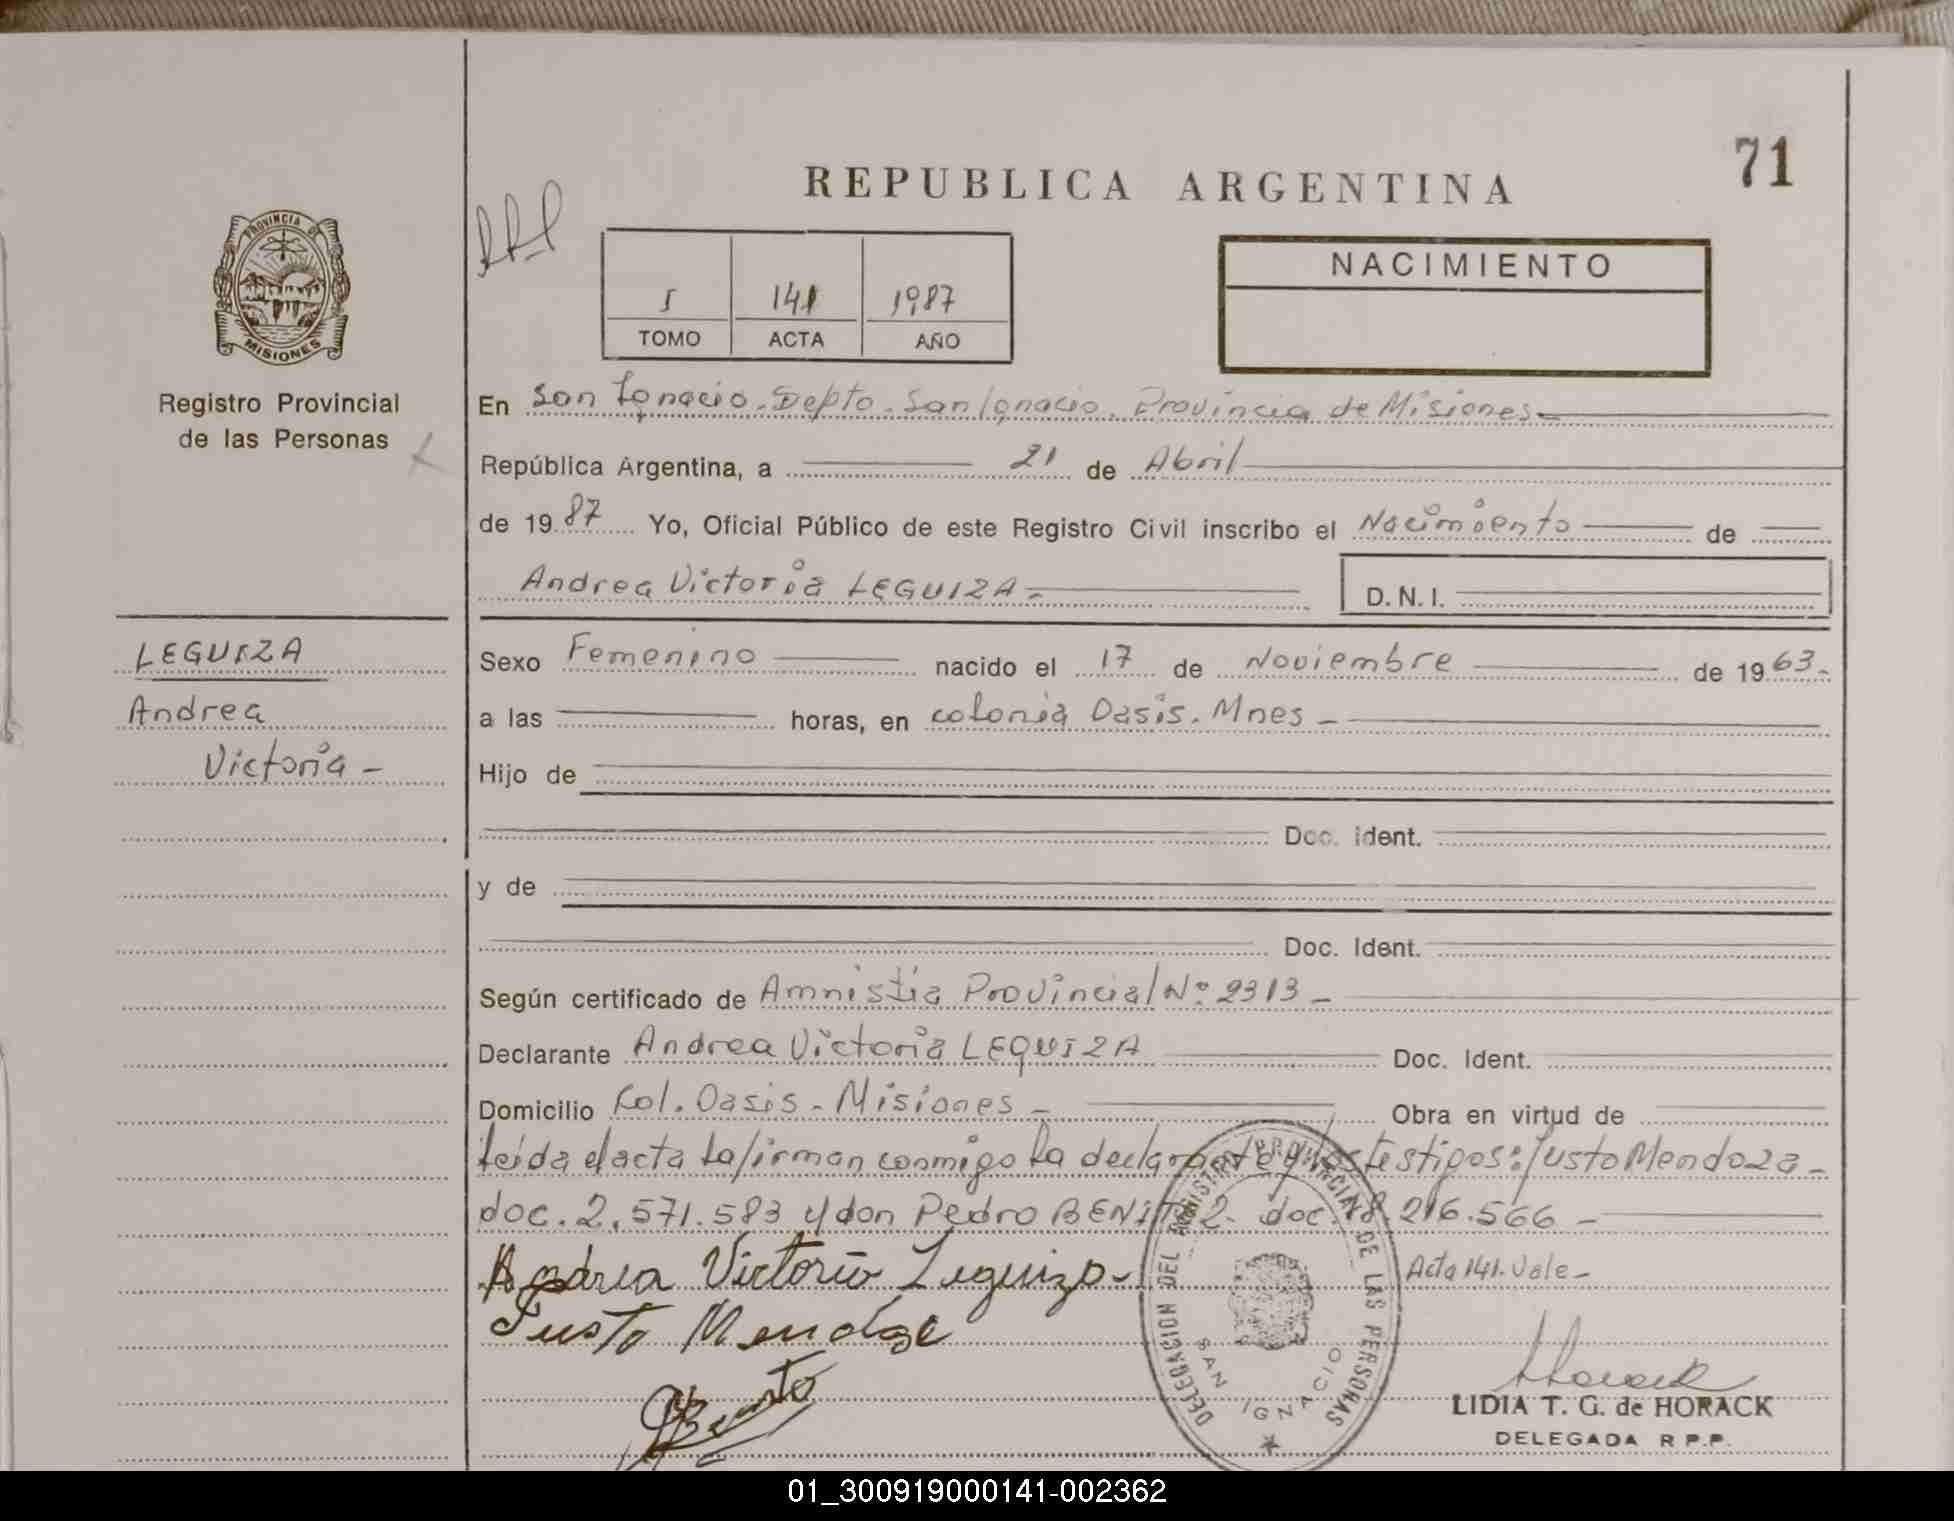 71
REPUBLICA ARGENTINA
PROVINCIA DE
MISIONES
Registro Provincial
de las Personas
I 141 1987
TOMO ACTA AÑO
NACIMIENTO
En San Ignacio. Depto. San Ignacio. Provincia de Misiones
República Argentina, a 21 de Abril
de 1987 Yo, Oficial Público de este Registro Civil inscribo el Nacimiento de
Andrea Victoria LEGUIZA D.N.I.
LEGUIZA
Andrea
Victoria -
Sexo Femenino nacido el 17 de Noviembre de 1963-
a las horas, en colonia Oasis. Mnes -
Hijo de
Doc. Ident.
y de
Doc. Ident.
Según certificado de Amnistia Provincial Nº 2313 -
Declarante Andrea Victoria LEGUIZA Doc. Ident.
Domicilio Col. Oasis - Misiones - Obra en virtud de
Leida el acta la firman conmigo la declarante y testigos: Justo Mendoza -
doc. 2.571.583 y don Pedro doc. 8.216.566 -
Andrea Victoria Leguiza - Acta 141. Vale -
Justo Mendoze
DELEGACION DEL REGISTRO PROVINCIAL DE LAS PERSONAS
SAN IGNACIO
LIDIA T. G. de HORACK
DELEGADA R.P.P.
01_300919000141-002362